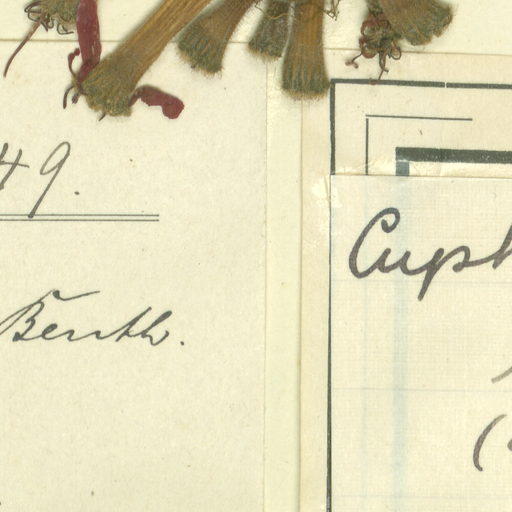 49.
Benth.
Cuph
(